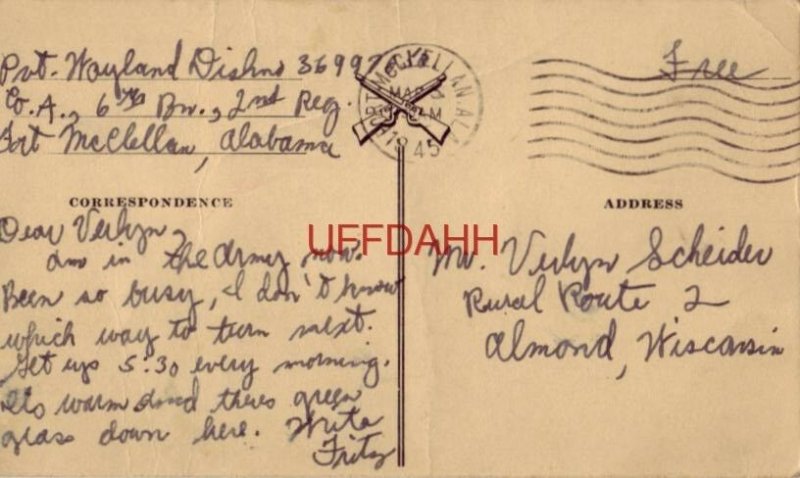 Pvt. Wayland Dishno 36997
Co. A., 6th Bn., 2nd Reg.
Fort McClellan, Alabama
Free
FORT MCCLELLAN, ALA.
MAR
M
1945
CORRESPONDENCE
Dear Verlyn,
Am in the Army now.
Been so busy, I don't know
which way to turn next.
Get up 5:30 every morning.
Its warm and theres green
grass down here. Write
Fritz
UFFDAHH
ADDRESS
Mr. Verlyn Scheider
Rural Route 2
Almond, Wisconsin